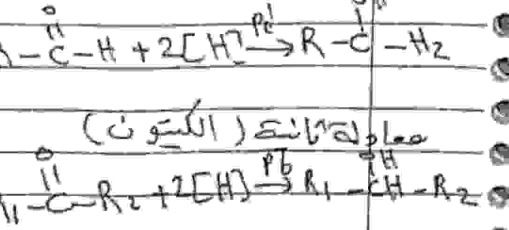 O
R-C-H + 2[H] Pd → R-C-H2
معادلة ثانية (الكيتون)
O OH
R1-C-R2 + 2[H] Pd → R1-CH-R2